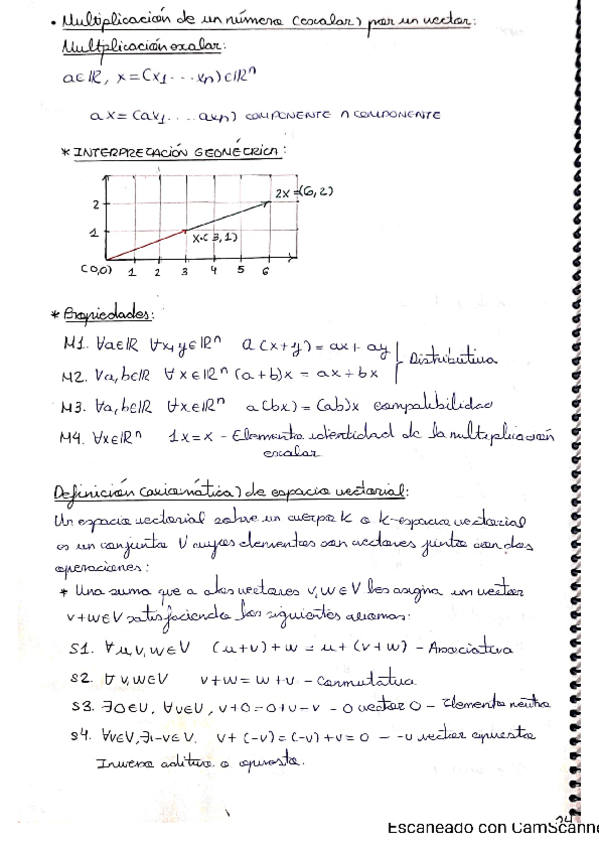 • Multiplicación de un número (escalar) por un vector:
Multiplicación escalar:
a∈ℝ, x=(x₁...xₙ)∈ℝⁿ
ax=(ax₁....axₙ) COMPONENTE A COMPONENTE
* INTERPRETACIÓN GEOMÉTRICA:
2x=(6,2)
2
1
x=(3,1)
(0,0) 1 2 3 4 5 6
* Propiedades:
M1. ∀a∈ℝ ∀x,y∈ℝⁿ a(x+y)=ax+ay
Distributiva
M2. ∀a,b∈ℝ ∀x∈ℝⁿ (a+b)x = ax+bx
M3. ∀a,b∈ℝ ∀x∈ℝⁿ a(bx)=(ab)x compatibilidad
M4. ∀x∈ℝⁿ 1x=x - Elemento identidad de la multiplicación
escalar
Definición (axiomática) de espacio vectorial:
Un espacio vectorial sobre un cuerpo K o K-espacio vectorial
es un conjunto V cuyos elementos son vectores junto con dos
operaciones:
* Una suma que a dos vectores v,w∈V les asigna un vector
v+w∈V satisfaciendo los siguientes axiomas:
S1. ∀u,v,w∈V (u+v)+w = u+(v+w) - Asociativa
S2. ∀v,w∈V v+w=w+v - Conmutativa
S3. ∃0∈V, ∀v∈V, v+0=0+v=v - 0 vector 0 - Elemento neutro
S4. ∀v∈V,∃-v∈V. v+(-v)=(-v)+v=0 - -v vector opuesto
Inverso aditivo o opuesto.
24
Escaneado con CamScanne